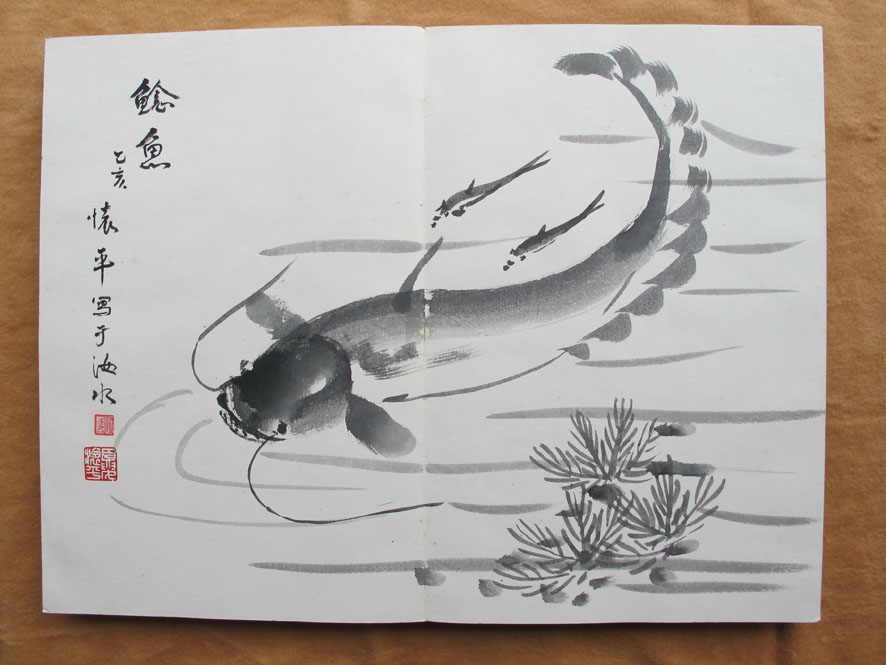 鲶魚
乙亥 懷平寫于汝水